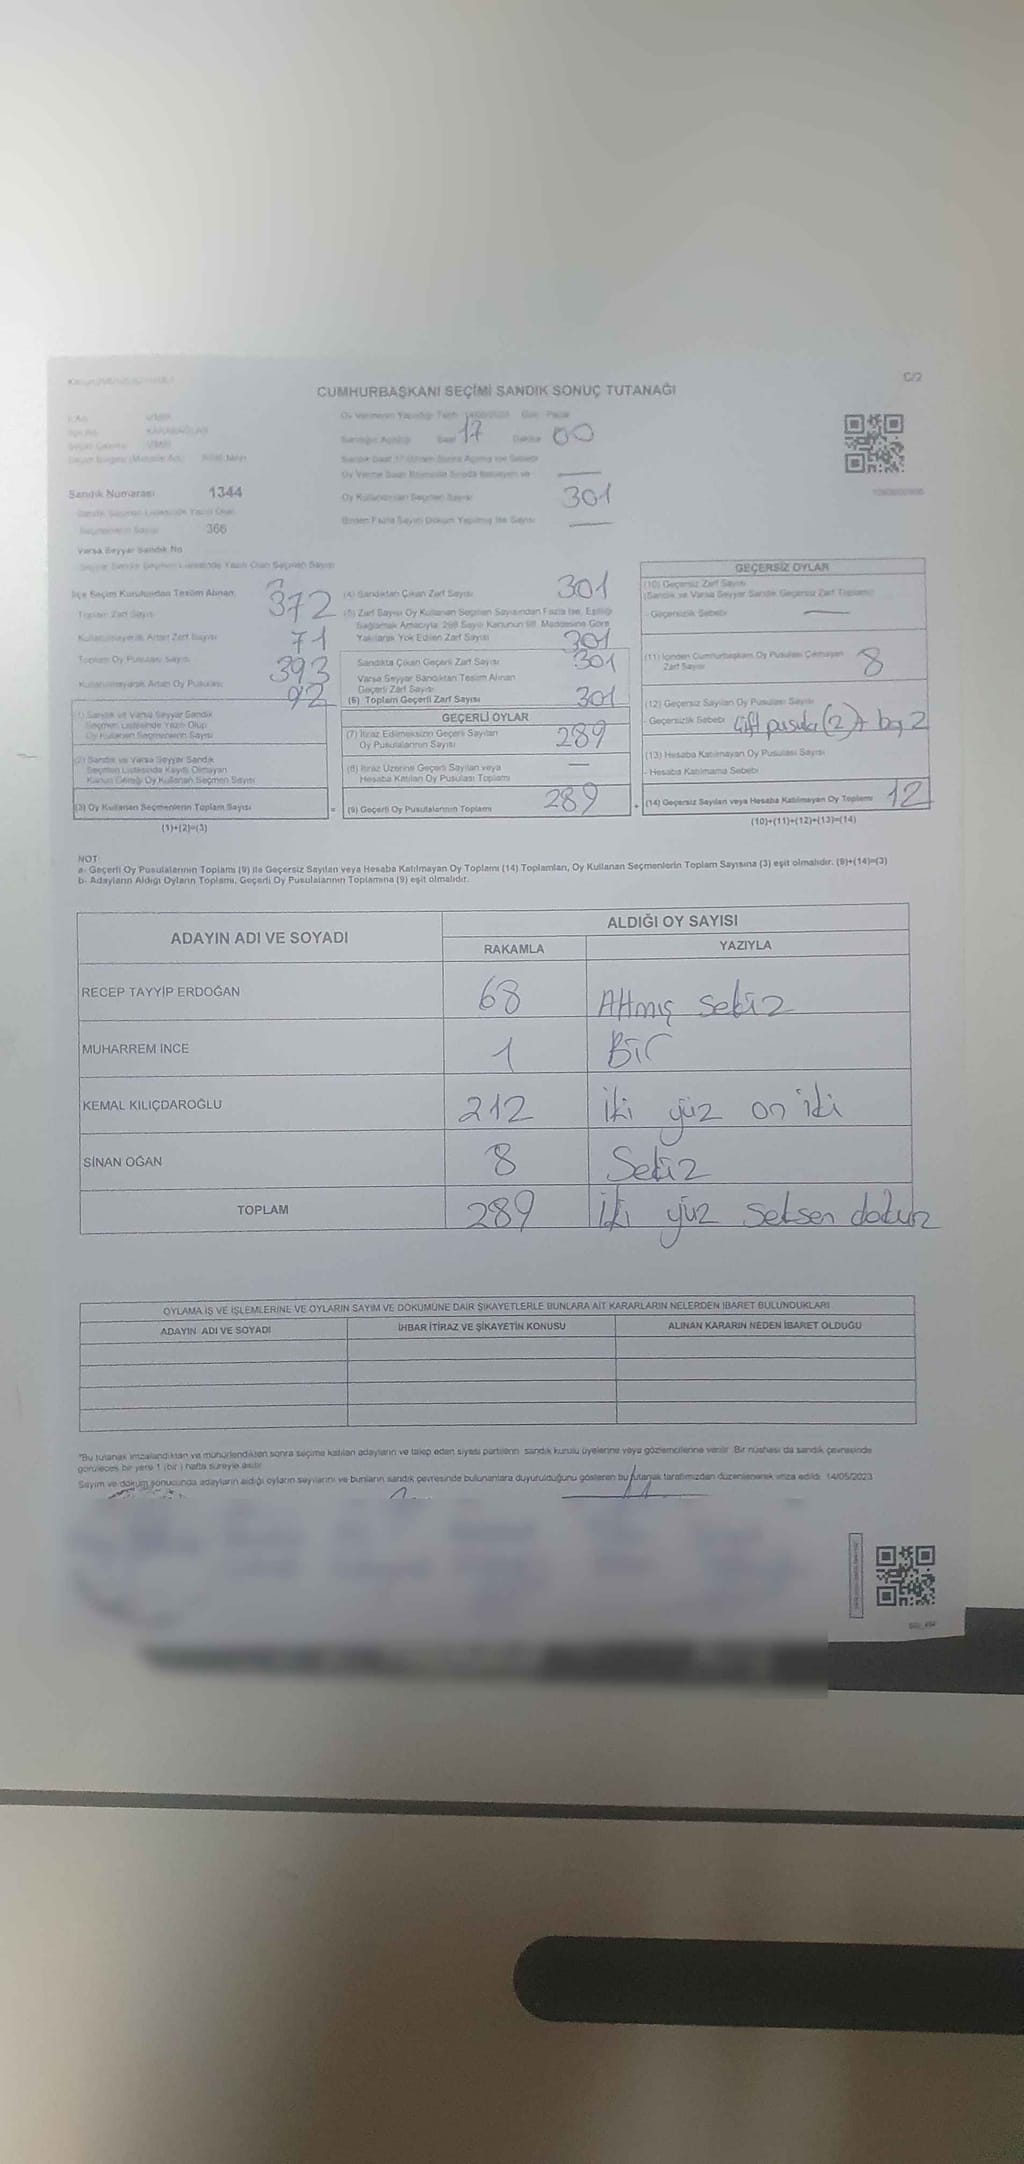 C/2
CUMHURBAŞKANI SEÇİMİ SANDIK SONUÇ TUTANAĞI
Oy Vermenin Yapıldığı Tarih 14/05/2023 Gün Pazar
İZMİR
KARABAĞLAR
Sandığın Açıldığı Saat 17 Dakika 00
Sandık Numarası 1344
Oy Kullanan Seçmen Sayısı 301
Seçmenlerin Sayısı 366
Birden Fazla Sayım Döküm Yapılmış İse Sayısı
Varsa Seyyar Sandık No
İlçe Seçim Kurulundan Teslim Alınan
Toplam Zarf Sayısı 372
Kullanılmayarak Artan Zarf Sayısı 71
Toplam Oy Pusulası Sayısı 393
Kullanılmayarak Artan Oy Pusulası 92
(1) Sandık ve Varsa Seyyar Sandık
Seçmen Listesinde Yazılı Olup
Oy Kullanan Seçmenlerin Sayısı
(2) Sandık ve Varsa Seyyar Sandık
Seçmen Listesinde Kayıtlı Olmayan
Kanun Gereği Oy Kullanan Seçmen Sayısı
(3) Oy Kullanan Seçmenlerin Toplam Sayısı
(1)+(2)=(3)
(4) Sandıktan Çıkan Zarf Sayısı 301
(5) Zarf Sayısı Oy Kullanan Seçmen Sayısından Fazla İse, Eşitliği
Sağlamak Amacıyla, 298 Sayılı Kanunun 98. Maddesine Göre
Yakılarak Yok Edilen Zarf Sayısı 301
Sandıkta Çıkan Geçerli Zarf Sayısı 301
Varsa Seyyar Sandıktan Teslim Alınan
Geçerli Zarf Sayısı
(6) Toplam Geçerli Zarf Sayısı 301
GEÇERLİ OYLAR
(7) İtiraz Edilmeksizin Geçerli Sayılan
Oy Pusulalarının Sayısı 289
(8) İtiraz Üzerine Geçerli Sayılan veya
Hesaba Katılan Oy Pusulası Toplamı —
= (9) Geçerli Oy Pusulalarının Toplamı 289
GEÇERSİZ OYLAR
(10) Geçersiz Zarf Sayısı
(Sandık ve Varsa Seyyar Sandık Geçersiz Zarf Toplamı)
- Geçersizlik Sebebi —
(11) İçinden Cumhurbaşkanı Oy Pusulası Çıkmayan
Zarf Sayısı 8
(12) Geçersiz Sayılan Oy Pusulası Sayısı
- Geçersizlik Sebebi Çift pusula (2) + boş 2
(13) Hesaba Katılmayan Oy Pusulası Sayısı
- Hesaba Katılmama Sebebi
+ (14) Geçersiz Sayılan veya Hesaba Katılmayan Oy Toplamı 12
(10)+(11)+(12)+(13)=(14)
NOT:
a- Geçerli Oy Pusulalarının Toplamı (9) ile Geçersiz Sayılan veya Hesaba Katılmayan Oy Toplamı (14) Toplamları, Oy Kullanan Seçmenlerin Toplam Sayısına (3) eşit olmalıdır. (9)+(14)=(3)
b- Adayların Aldığı Oyların Toplamı, Geçerli Oy Pusulalarının Toplamına (9) eşit olmalıdır.
ADAYIN ADI VE SOYADI ALDIĞI OY SAYISI
RAKAMLA YAZIYLA
RECEP TAYYİP ERDOĞAN 68 Altmış sekiz
MUHARREM İNCE 1 Bir
KEMAL KILIÇDAROĞLU 212 İki yüz on iki
SİNAN OĞAN 8 Sekiz
TOPLAM 289 İki yüz seksen dokuz
OYLAMA İŞ VE İŞLEMLERİNE VE OYLARIN SAYIM VE DÖKÜMÜNE DAİR ŞİKAYETLERLE BUNLARA AİT KARARLARIN NELERDEN İBARET BULUNDUKLARI
ADAYIN ADI VE SOYADI İHBAR İTİRAZ VE ŞİKAYETİN KONUSU ALINAN KARARIN NEDEN İBARET OLDUĞU
"Bu tutanak imzalandıktan ve mühürlendikten sonra seçime katılan adayların ve talep eden siyasi partilerin sandık kurulu üyelerine veya gözlemcilerine verilir. Bir nüshası da sandık çevresinde
görülecek bir yere 1 (bir) hafta süreyle asılır.
Sayım ve döküm sonucunda adayların aldığı oyların sayılarını ve bunların sandık çevresinde bulunanlara duyurulduğunu gösteren bu tutanak tarafımızdan düzenlenerek imza edildi. 14/05/2023